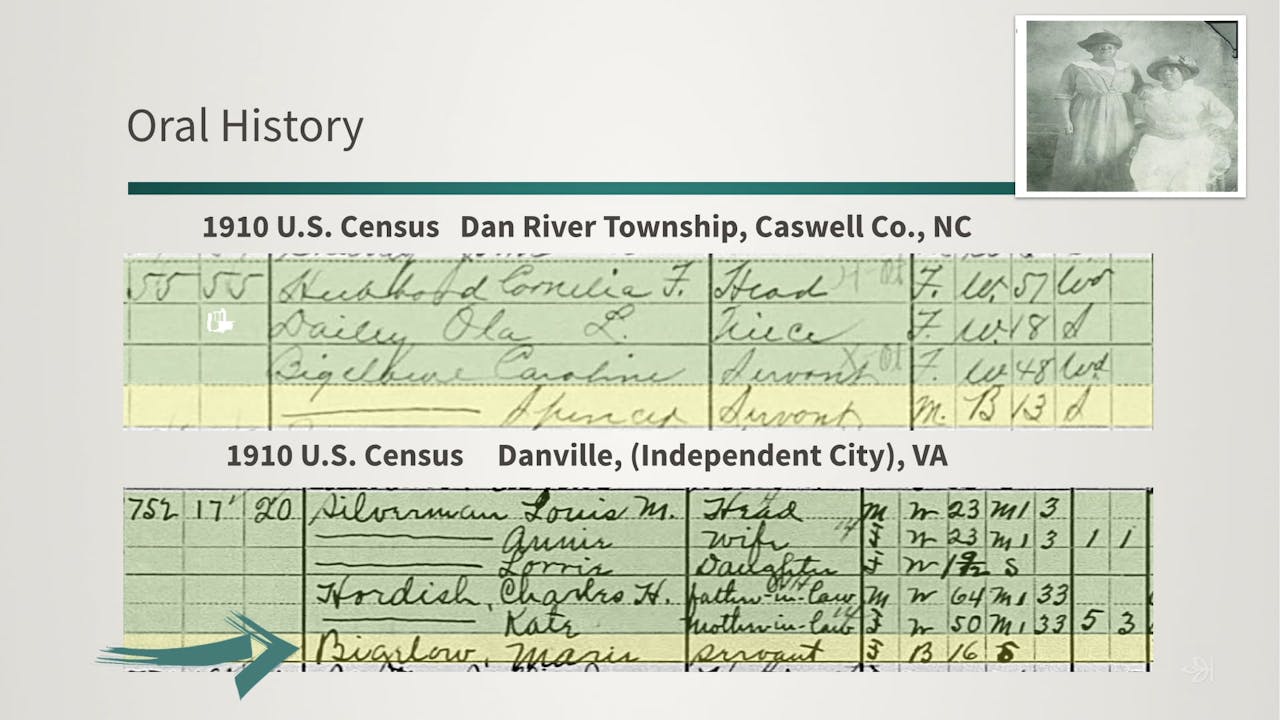 Oral History
1910 U.S. Census Dan River Township, Caswell Co., NC
55 55 Hubbard Cornelia F. Head F. W. 57 Wd
Dailey Ola L. Niece F. W. 18 S
Bigelowe Caroline Servant F. W 48 Wd
Spencer Servant M. B 13 S
1910 U.S. Census Danville, (Independent City), VA
752 17 20 Silverman Louis M. Head M W 23 M1 3
Annie Wife F W 23 M1 3 1 1
Lorris Daughter F W S
Hordish, Charles H. father-in-law M W 64 M1 33
Kate Mother-in-law F W 50 M1 33 5 3
Bigelow, Marie servant F B 16 S